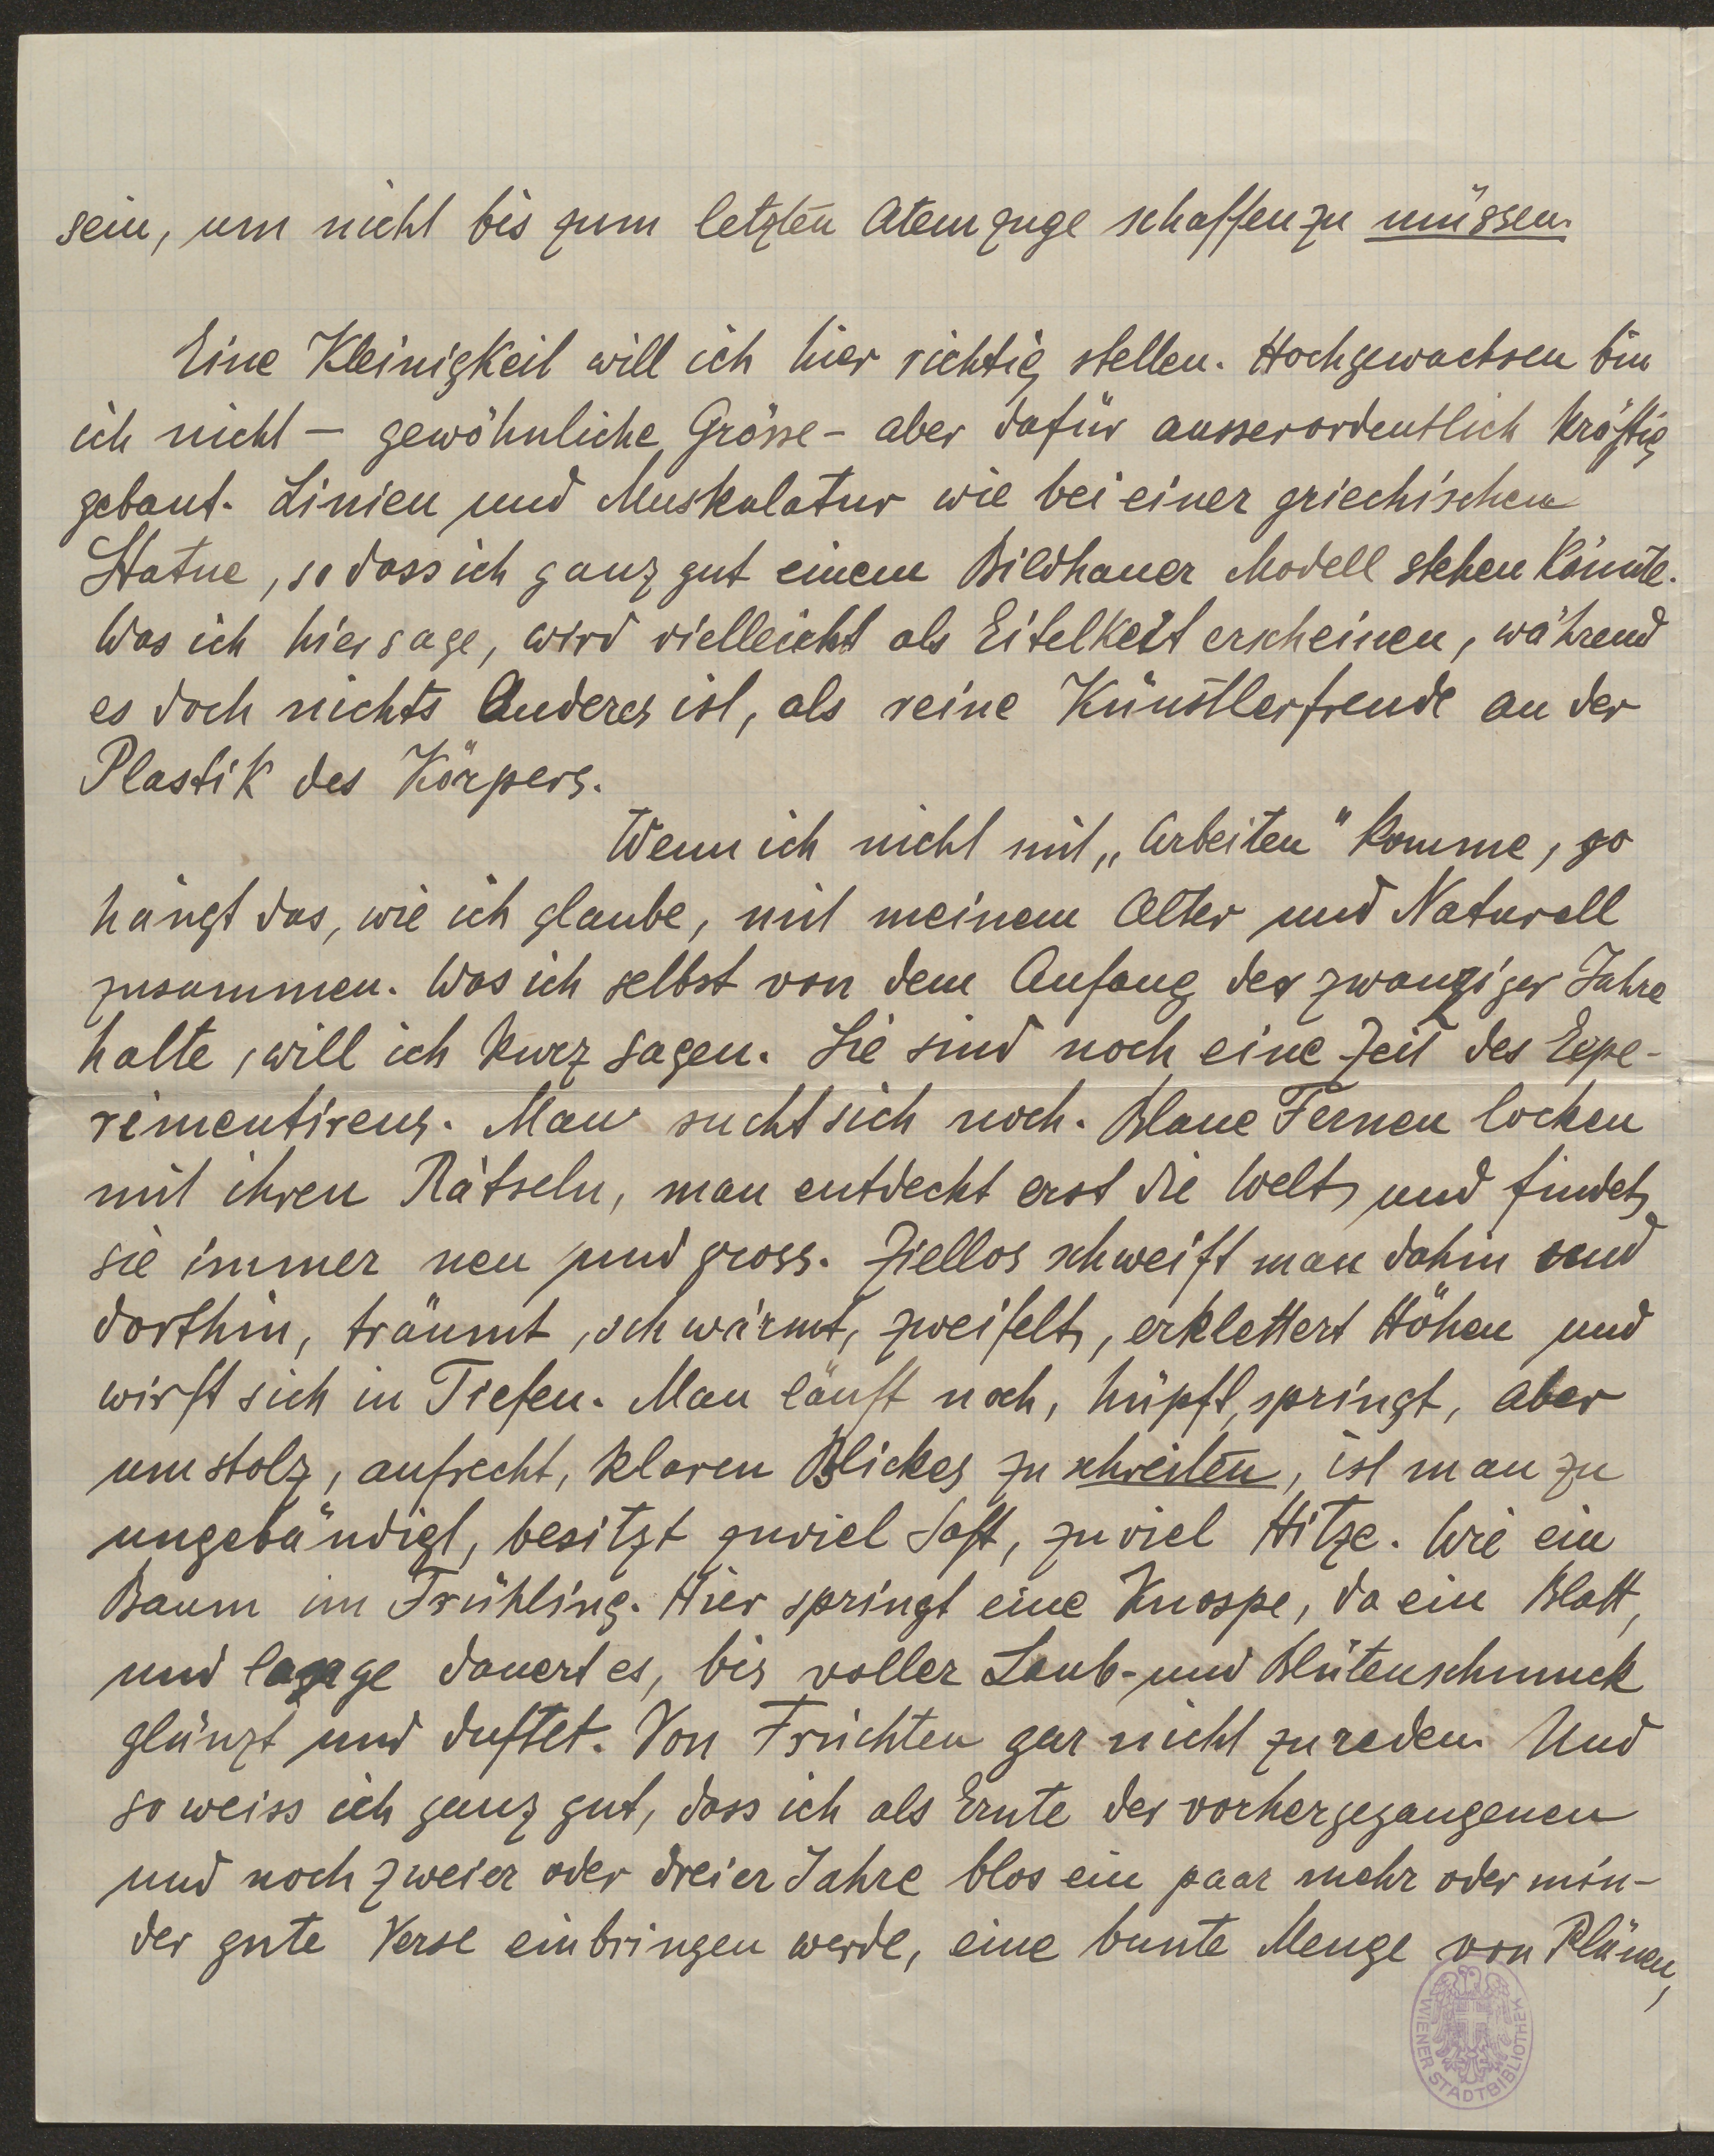 sein, um nicht bis zum letzten Atemzuge schaffen zu müssen.
Eine Kleinigkeit will ich hier richtig stellen. Hochgewachsen bin
ich nicht — gewöhnliche Grösse – aber dafür ausserordentlich kräftig
gebaut. Linien und Muskulatur wie bei einer griechischen
Statue, so dass ich ganz gut einem Bildhauer Modell stehen könnte.
Was ich hier sage, wird vielleicht als Eitelkeit erscheinen, während
es doch nichts Anderes ist, als reine Künstlerfreude an der
Plastik des Körpers.
Wenn ich nicht mit „Arbeiten" komme, so
hängt das, wie ich glaube, mit meinem Alter und Naturell
zusammen. Was ich selbst von dem Anfang der zwanziger Jahre
halte, will ich kurz sagen. Sie sind noch eine Zeit des Expe-
rimentirens. Man sucht sich noch. Blaue Fernen locken
mit ihren Rätseln, man entdeckt erst die Welt und findet
sie immer neu und gross. Ziellos schweift man dahin und
dorthin, träumt, schwärmt, zweifelt, erklettert Höhen und
wirft sich in Tiefen. Man läuft noch, hüpft, springt, aber
um stolz, aufrecht, klaren Blickes zu schreiten, ist man zu
ungebändigt, besitzt zuviel Saft, zu viel Hitze. Wie ein
Baum im Frühling. Hier springt eine Knospe, da ein Blatt,
und lange dauert es, bis voller Laub- und Blütenschmuck
glänzt und duftet. Von Früchten gar nicht zu reden. Und
so weiss ich ganz gut, dass ich als Ernte der vorhergegangenen
und noch zweier oder dreier Jahre blos ein paar mehr oder min-
der gute Verse einbringen werde, eine bunte Menge von Plänen,
WIENER STADTBIBLIOTHEK